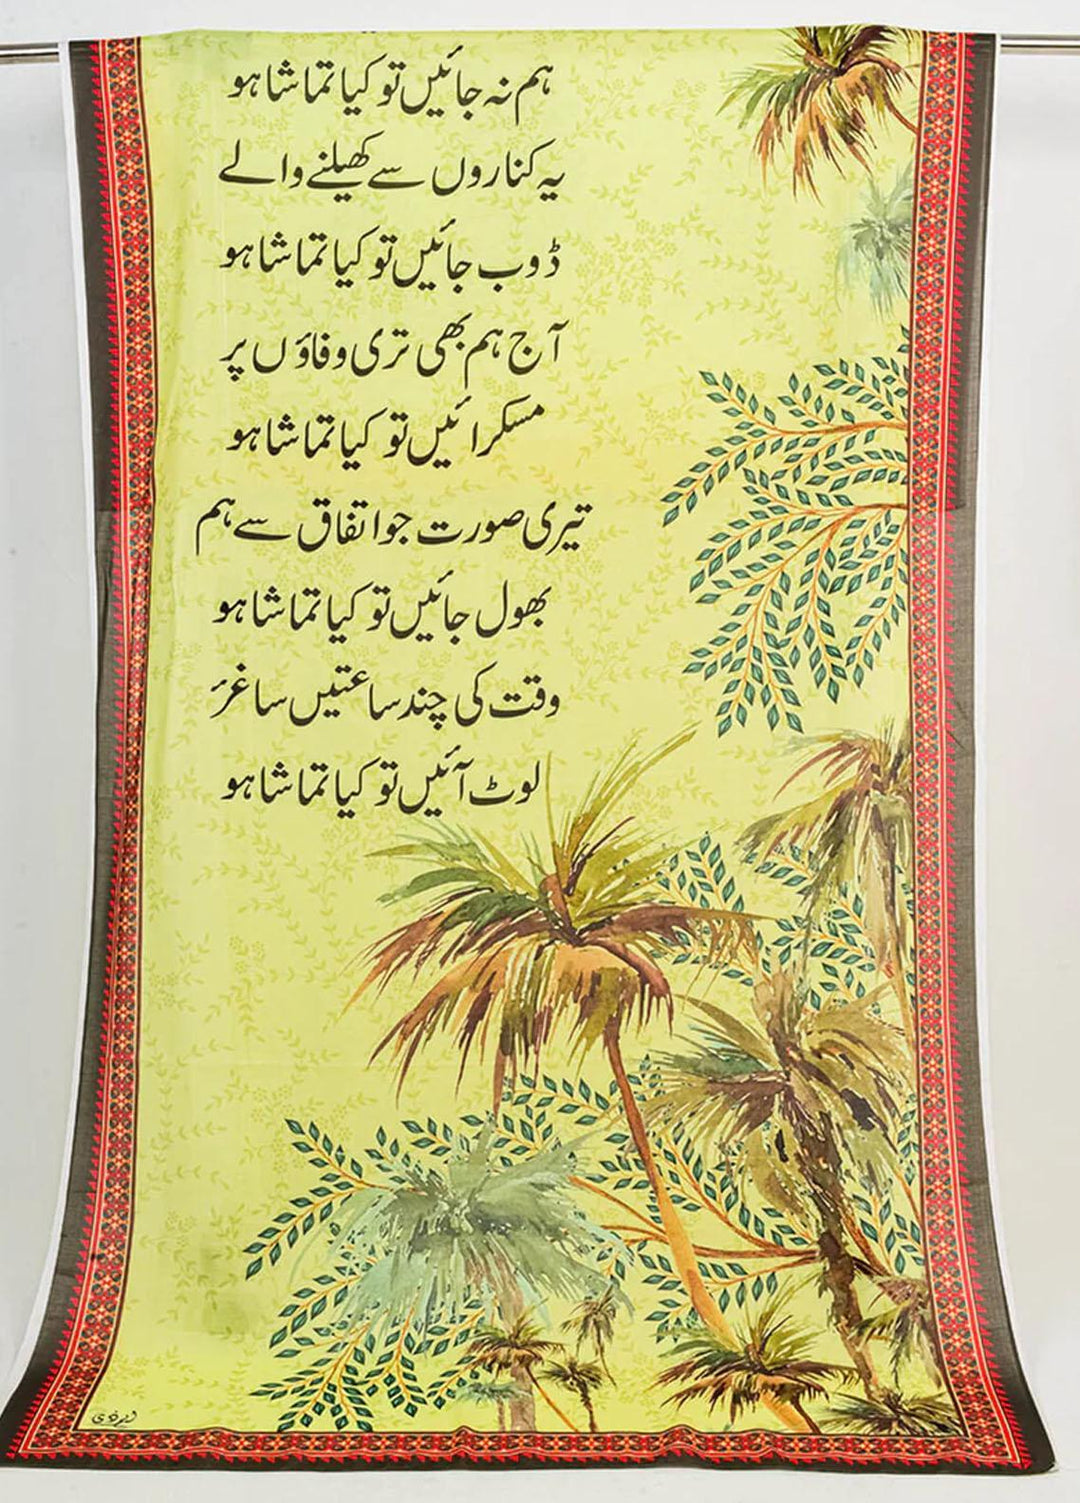 ہم نہ جائیں تو کیا تماشا ہو
یہ کناروں سے کھیلنے والے
ڈوب جائیں تو کیا تماشا ہو
آج ہم بھی تری وفاؤں پر
مسکرائیں تو کیا تماشا ہو
تیری صورت جو اتفاق سے ہم
بھول جائیں تو کیا تماشا ہو
وقت کی چند ساعتیں ساغرؔ
لوٹ آئیں تو کیا تماشا ہو